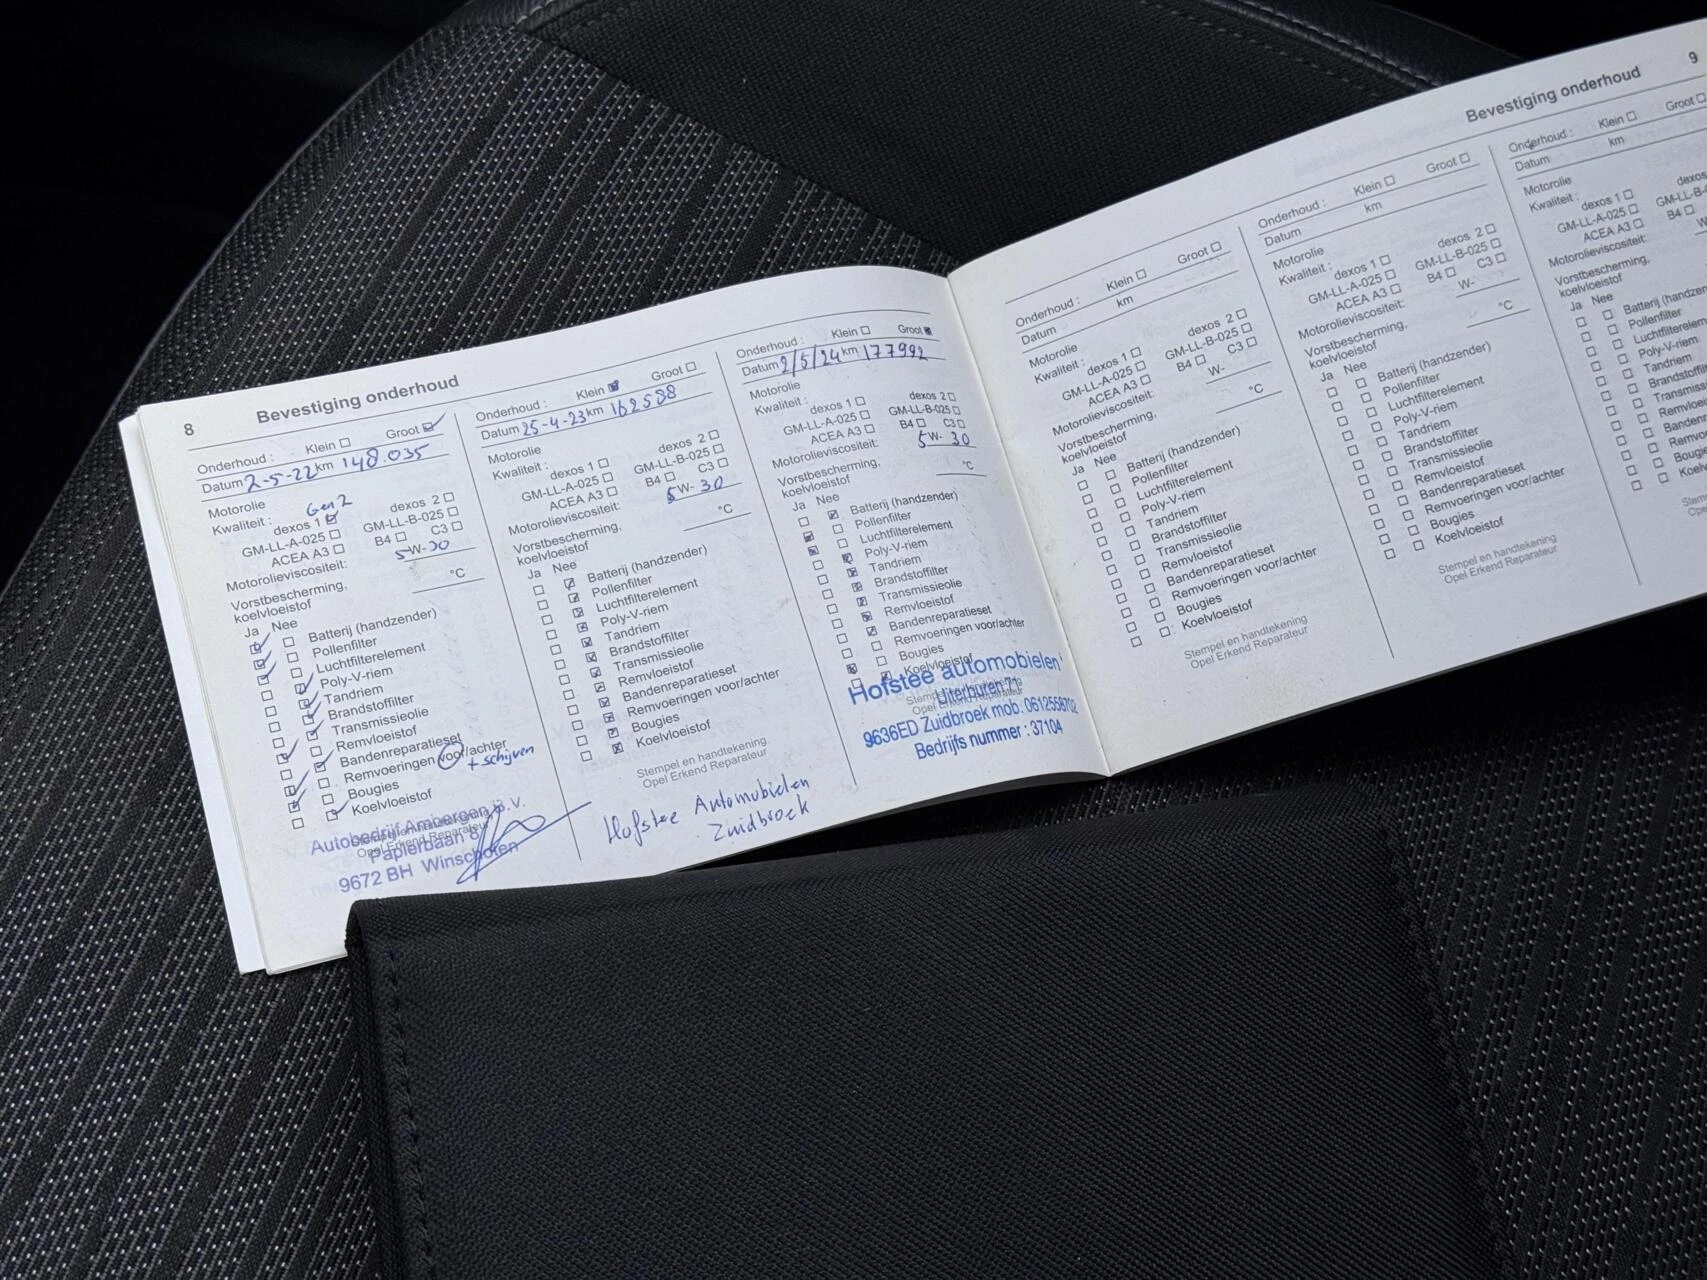 8
Bevestiging onderhoud
Onderhoud : Klein Groot
Datum 2-5-22 km 148.035
Motorolie
Gen 2
Kwaliteit : dexos 1 dexos 2
GM-LL-A-025 GM-LL-B-025
ACEA A3 B4 C3
Motorolieviscositeit: 5W-30
Vorstbescherming,
koelvloeistof °C
Ja Nee
Batterij (handzender)
Pollenfilter
Luchtfilterelement
Poly-V-riem
Tandriem
Brandstoffilter
Transmissieolie
Remvloeistof
Bandenreparatieset
Remvoeringen voor/achter
+ schijven
Bougies
Koelvloeistof
Stempel en handtekening
Opel Erkend Reparateur
Autobedrijf Ambergen B.V.
Papierbaan 8
9672 BH Winschoten
Onderhoud : Klein Groot
Datum 25-4-23 km 162588
Motorolie
Kwaliteit : dexos 1 dexos 2
GM-LL-A-025 GM-LL-B-025
ACEA A3 B4 C3
Motorolieviscositeit: 5W-30
Vorstbescherming,
koelvloeistof °C
Ja Nee
Batterij (handzender)
Pollenfilter
Luchtfilterelement
Poly-V-riem
Tandriem
Brandstoffilter
Transmissieolie
Remvloeistof
Bandenreparatieset
Remvoeringen voor/achter
Bougies
Koelvloeistof
Stempel en handtekening
Opel Erkend Reparateur
Hofstee Automobielen
Zuidbroek
Onderhoud : Klein Groot
Datum 2/5/24 km 177992
Motorolie
Kwaliteit : dexos 1 dexos 2
GM-LL-A-025 GM-LL-B-025
ACEA A3 B4 C3
Motorolieviscositeit: 5W-30
Vorstbescherming,
koelvloeistof °C
Ja Nee
Batterij (handzender)
Pollenfilter
Luchtfilterelement
Poly-V-riem
Tandriem
Brandstoffilter
Transmissieolie
Remvloeistof
Bandenreparatieset
Remvoeringen voor/achter
Bougies
Koelvloeistof
Hofstee automobielen
Uiterburen 71
9636ED Zuidbroek mob.
Bedrijfs nummer : 37104
Bevestiging onderhoud
9
Onderhoud : Klein Groot
Datum km
Motorolie
Kwaliteit : dexos 1 dexos 2
GM-LL-A-025 GM-LL-B-025
ACEA A3 B4 C3
Motorolieviscositeit: W-
Vorstbescherming,
koelvloeistof °C
Ja Nee
Batterij (handzender)
Pollenfilter
Luchtfilterelement
Poly-V-riem
Tandriem
Brandstoffilter
Transmissieolie
Remvloeistof
Bandenreparatieset
Remvoeringen voor/achter
Bougies
Koelvloeistof
Stempel en handtekening
Opel Erkend Reparateur
Onderhoud : Klein Groot
Datum km
Motorolie
Kwaliteit : dexos 1 dexos 2
GM-LL-A-025 GM-LL-B-025
ACEA A3 B4 C3
Motorolieviscositeit: W-
Vorstbescherming,
koelvloeistof °C
Ja Nee
Batterij (handzender)
Pollenfilter
Luchtfilterelement
Poly-V-riem
Tandriem
Brandstoffilter
Transmissieolie
Remvloeistof
Bandenreparatieset
Remvoeringen voor/achter
Bougies
Koelvloeistof
Stempel en handtekening
Opel Erkend Reparateur
Onderhoud : Klein Groot
Datum km
Motorolie
Kwaliteit : dexos 1 dexos
GM-LL-A-025
ACEA A3 B4
Motorolieviscositeit:
Vorstbescherming,
koelvloeistof
Ja Nee
Pollenfilter
Poly-V-riem
Tandriem